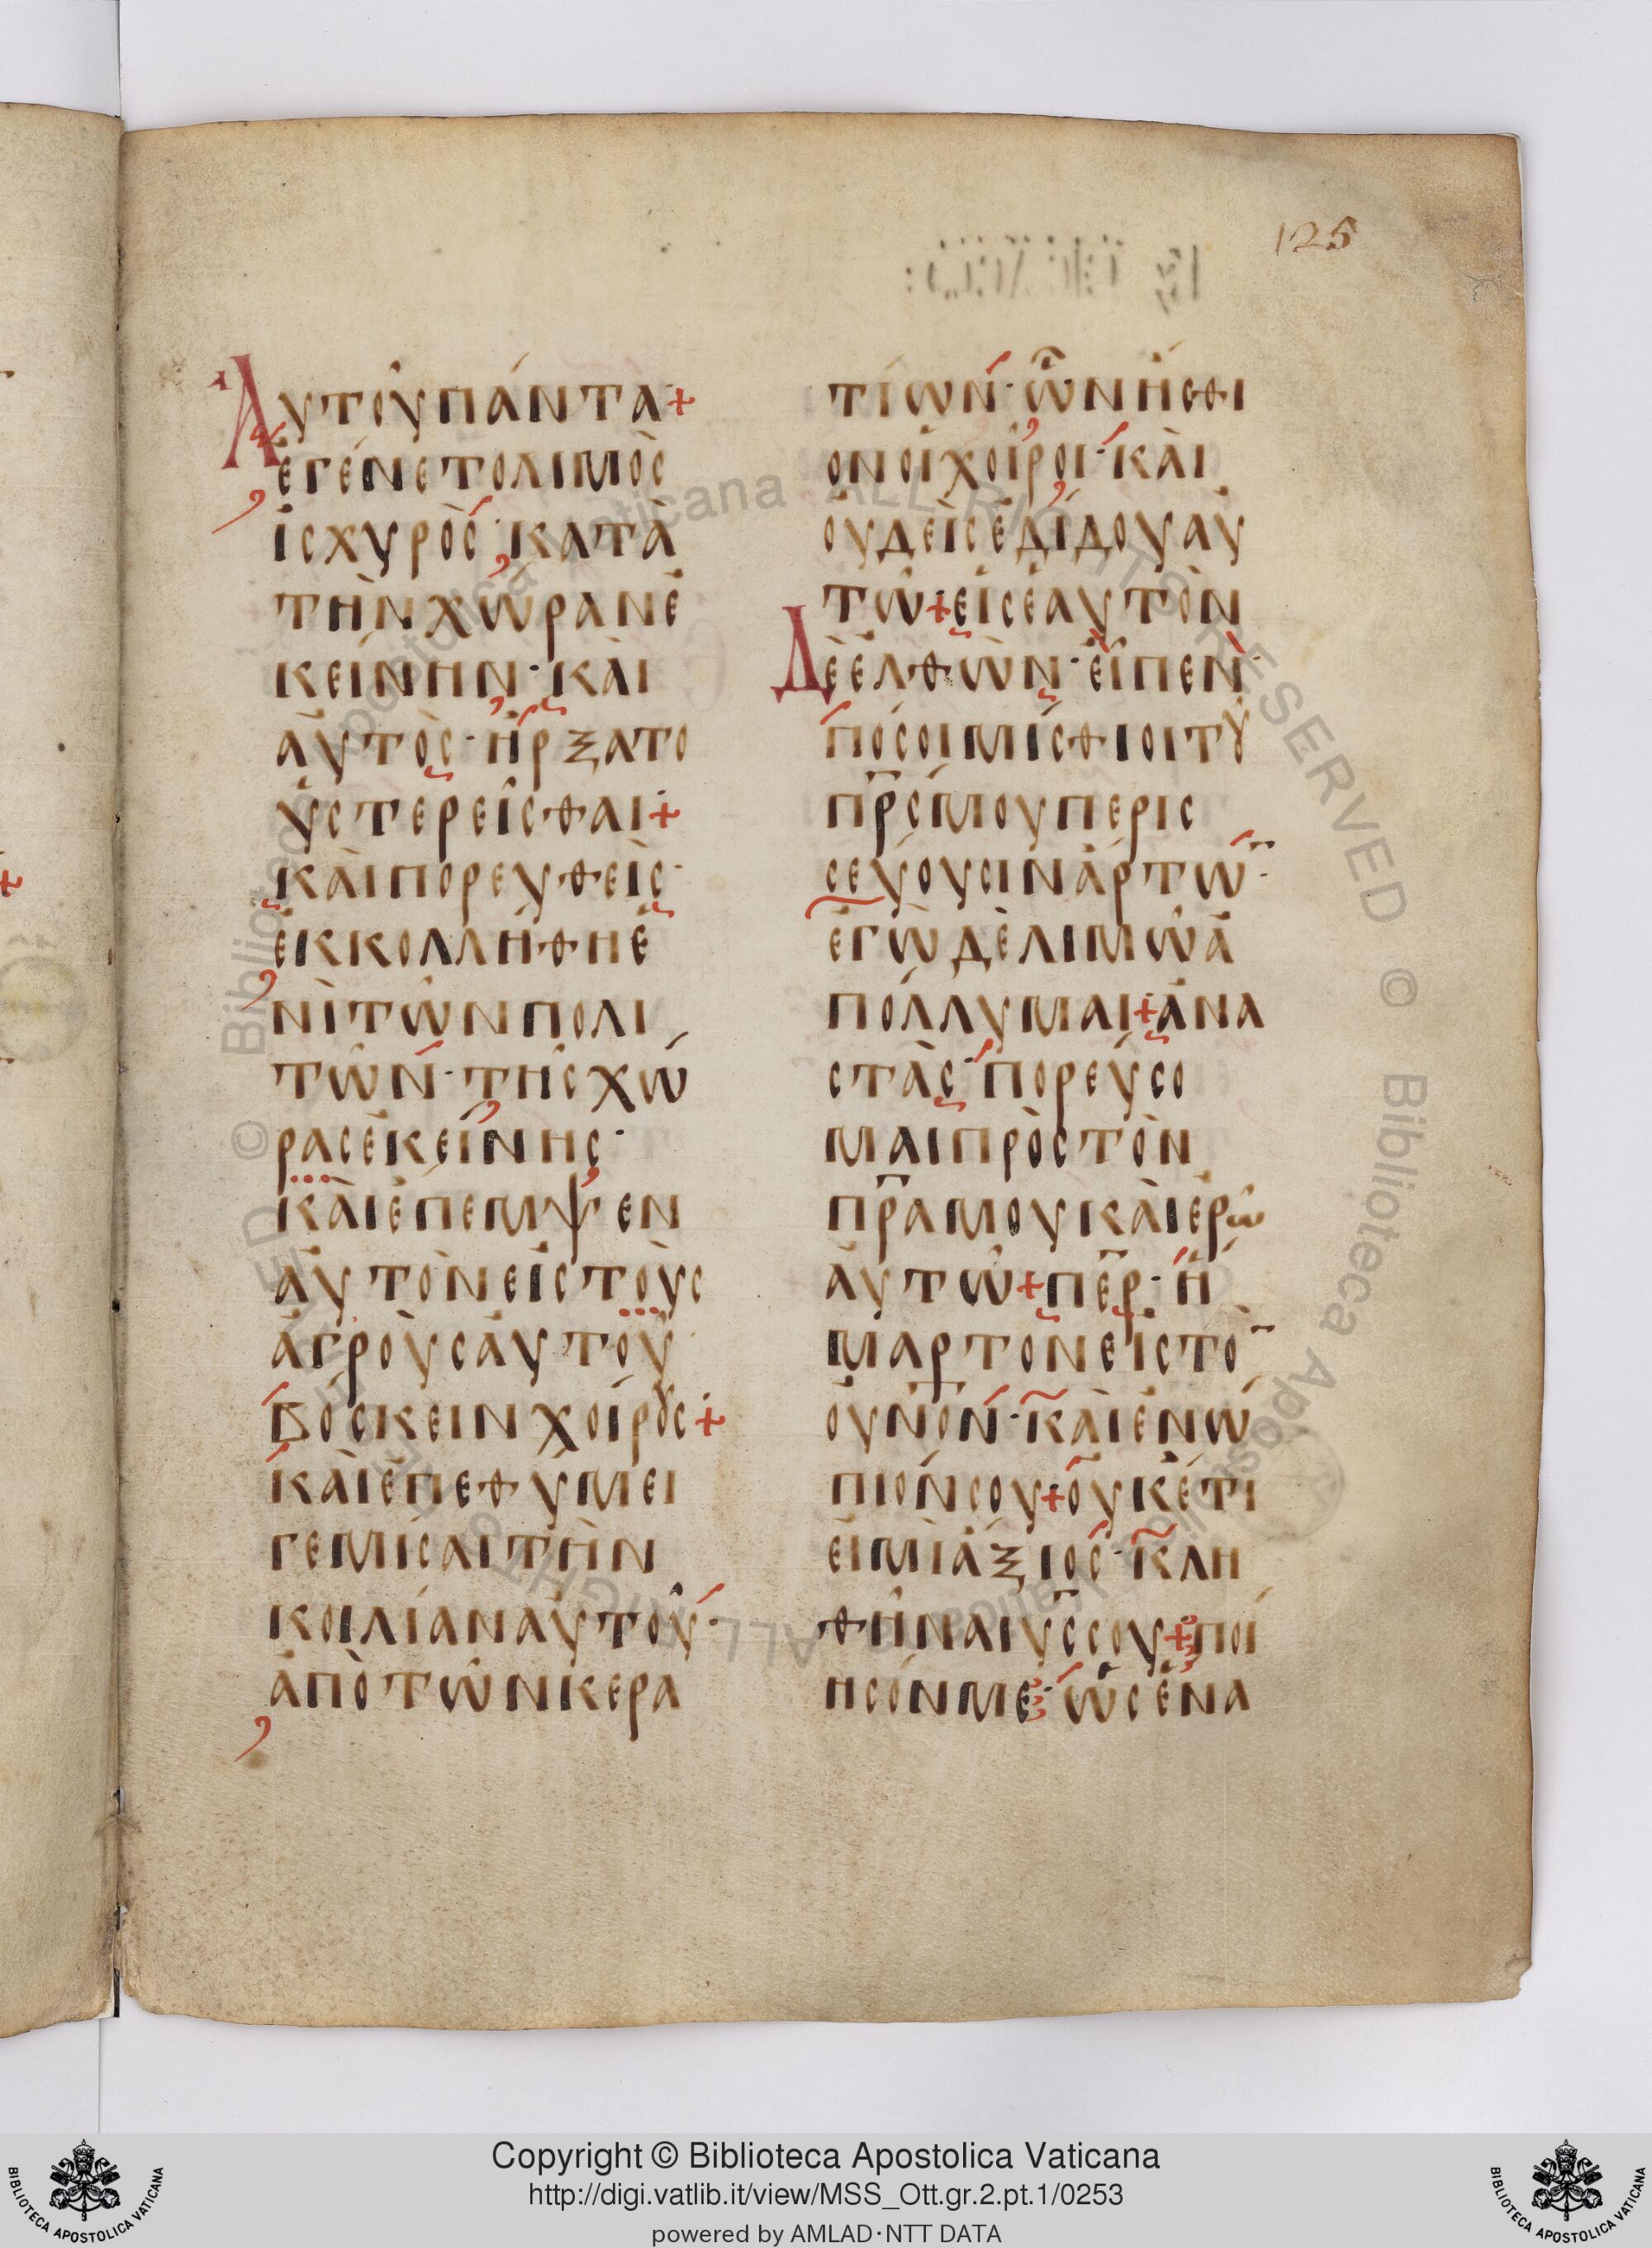 125
Αὐτοῦ πάντα+
ἐγένετο λιμὸς
ἰσχυρὸς· κατὰ
τὴν χώραν ἐ
κείνην· κὰι
ἀυτὸς· ἤρξατο
ὑστερεῖσθαι+
κὰι πορευθεὶς·
ἐκκολλήθη ἑ
νὶ τῶν πολι
τῶν· τῆς χώ
ρας ἐκείνης·
κὰι ἔπεμψεν
ἀυτὸν εἰς τοὺς
ἀγροὺς ἀυτοῦ
βόσκειν χοίρȣς+
κὰι ἐπεθύμει
γεμίσαι τὴν
κοιλίαν ἀυτοῦ·
ἀπὸ τῶν κερα
τίων· ὧν ἤσθι
ον οἱ χοῖροι· κὰι
ουδεὶς ἐδίδου αὐ
τῶ+ εἰς ἑαυτὸν
Δὲ ἐλθὼν· εἶπεν·
πόσοι μίσθιοι τȣ͂
π̅ρ̅ς μου περισ
σεύουσιν ἄρτω̅·
ἐγὼ δὲ λιμῶ ἀ
πόλλυμαι+ ἀνα
στὰς· πορεύσο
μαι πρὸς τὸν
π̅ρ̅α μου κὰι ἐρῶ
ἀυτῶ+ π̅ε̅ρ· ἥ
μαρτον εἰς το̅
ουνον· κὰι ἐνώ
πιόν σου+ ὀυκέτι
εἰμὶ ἄξιος· κλη
θῆναι υ̅ς̅ σου+ ποί
ησόν με· ὡς ἕνα
Copyright © Biblioteca Apostolica Vaticana
http://digi.vatlib.it/view/MSS_Ott.gr.2.pt.1/0253
powered by AMLAD·NTT DATA
BIBLIOTECA APOSTOLICA VATICANA
BIBLIOTECA APOSTOLICA VATICANA